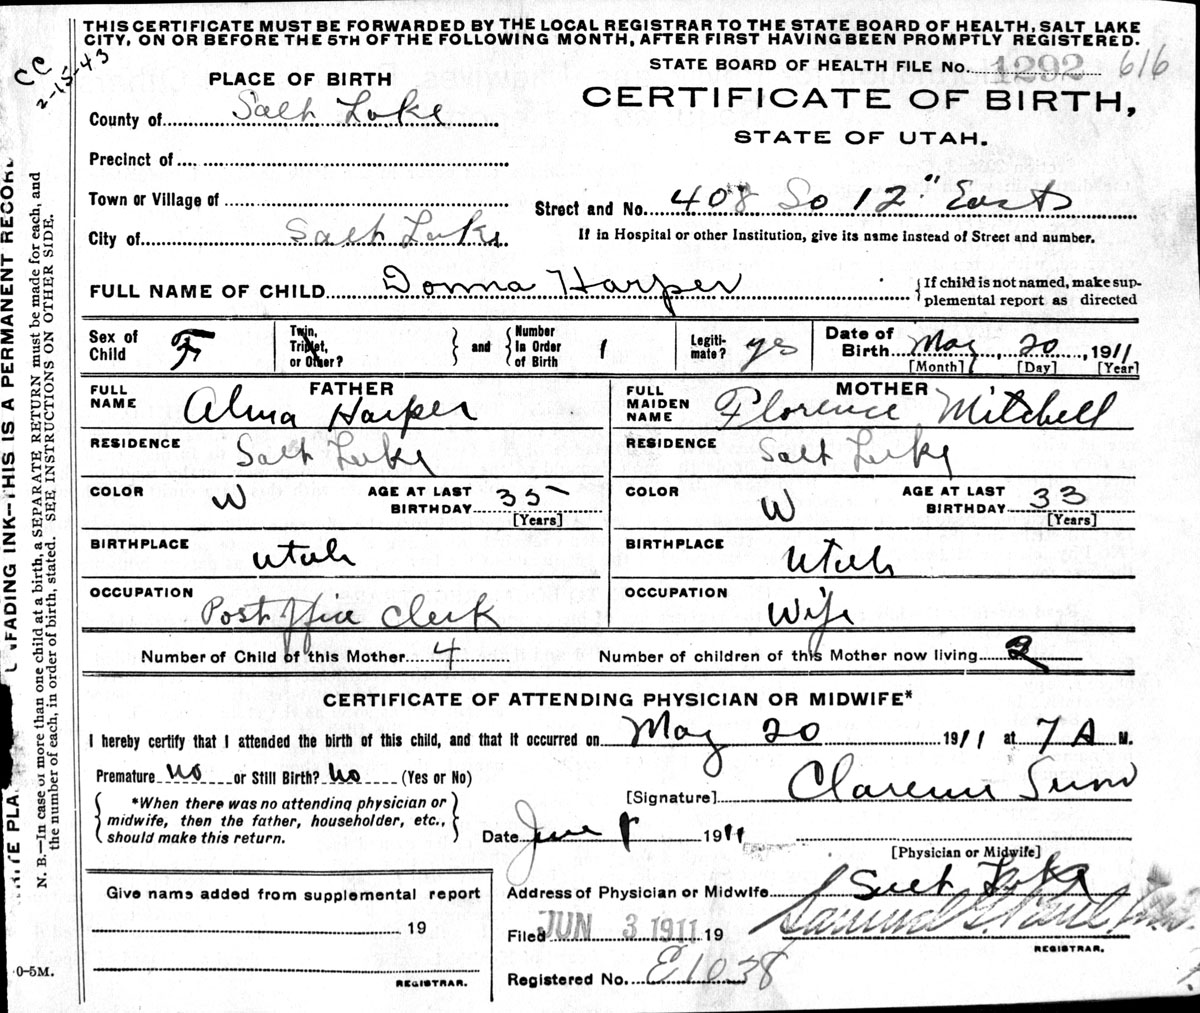 THIS CERTIFICATE MUST BE FORWARDED BY THE LOCAL REGISTRAR TO THE STATE BOARD OF HEALTH, SALT LAKE
CITY, ON OR BEFORE THE 5TH OF THE FOLLOWING MONTH, AFTER FIRST HAVING BEEN PROMPTLY REGISTERED.
CC
2-15-43
STATE BOARD OF HEALTH FILE No. 1292 616
PLACE OF BIRTH
CERTIFICATE OF BIRTH,
STATE OF UTAH.
County of Salt Lake
Precinct of
Town or Village of
Street and No. 408 So 12" East
City of Salt Lake
If in Hospital or other Institution, give its name instead of Street and number.
FULL NAME OF CHILD Donna Harper
If child is not named, make sup-
plemental report as directed
Sex of Child F
Twin, Triplet, or Other?
and
Number In Order of Birth 1
Legiti-mate? yes
Date of Birth May, 20, 1911
[Month] [Day] [Year]
FATHER
FULL NAME Alma Harper
MOTHER
FULL MAIDEN NAME Florence Mitchell
RESIDENCE Salt Lake
RESIDENCE Salt Lake
COLOR W AGE AT LAST BIRTHDAY 35 [Years]
COLOR W AGE AT LAST BIRTHDAY 33 [Years]
BIRTHPLACE Utah
BIRTHPLACE Utah
OCCUPATION Post Office Clerk
OCCUPATION Wife
Number of Child of this Mother 4 Number of children of this Mother now living 2
CERTIFICATE OF ATTENDING PHYSICIAN OR MIDWIFE*
I hereby certify that I attended the birth of this child, and that it occurred on May 20 1911 at 7 A M.
Premature no or Still Birth? no (Yes or No)
*When there was no attending physician or
midwife, then the father, householder, etc.,
should make this return.
[Signature] Clarence
Date June 1911
[Physician or Midwife]
Give name added from supplemental report
19
REGISTRAR.
Address of Physician or Midwife Salt Lake
Filed JUN 3 1911 19
Samuel G. Paul
REGISTRAR.
Registered No. E1038
FADING INK—THIS IS A PERMANENT RECORD
N. B.—In case of more than one child at a birth, a SEPARATE RETURN must be made for each, and
the number of each, in order of birth, stated. SEE INSTRUCTIONS ON OTHER SIDE.
0-5M.